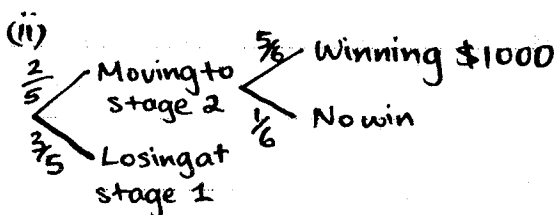 (ii)
2/5 Moving to stage 2
5/6 Winning $1000
1/6 No win
3/5 Losing at stage 1